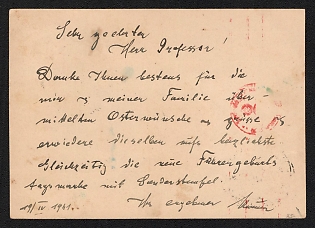 Sehr geehrter
Herr Professor!
Danke Ihnen bestens für die
mir u meiner Familie über-
mittelten Osterwünsche u
erwiedere dieselben aufs herzlichste
Gleichzeitig die neue Führergeburts
tagsmarke mit Sonderstempel.
Ihr ergebener
19/IV 1941.